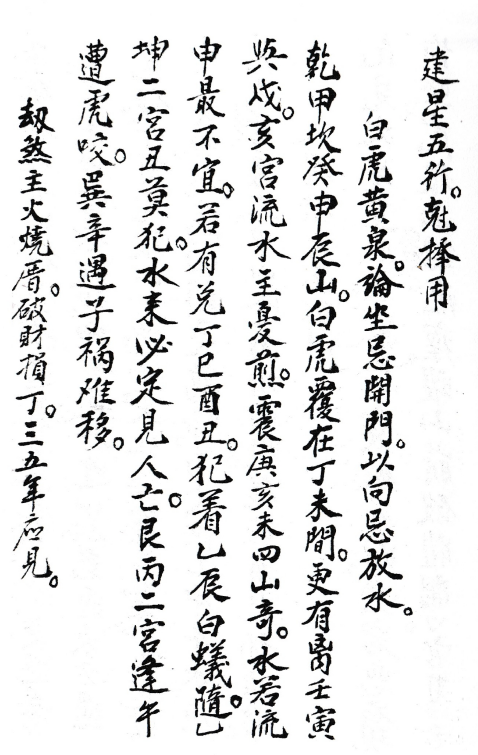 建星五行。尅擇用
白虎黄泉。論坐忌開門。以向忌放水。
乾甲坎癸申辰山。白虎覆在丁未間。更有离壬寅
與戍。亥宫流水主憂煎。震庚亥未四山奇。水若流
申最不宜。若有兑丁巳酉丑。犯着乙辰白蟻随。乙
坤二宫丑莫犯。水来必定見人亡。艮丙二宫逢午
遭虎咬。巽辛遇子祸难移。
劫煞主火燒厝。破財損丁。三五年应見。